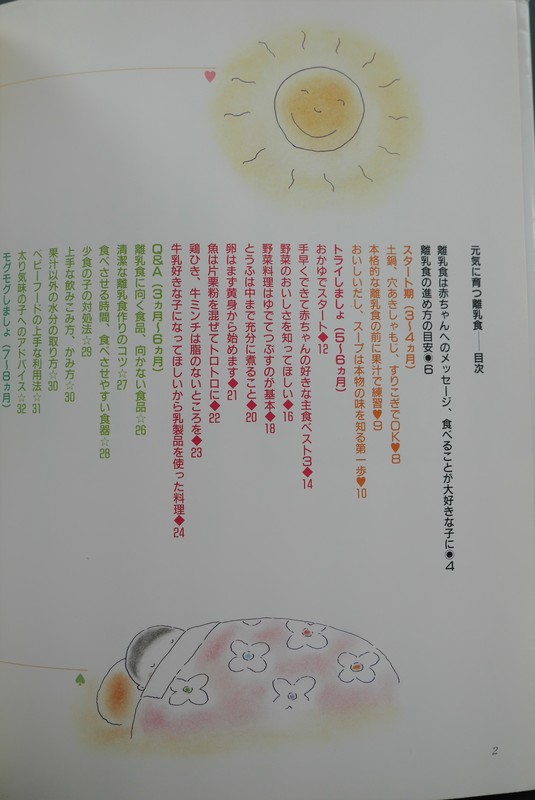 元気に育つ離乳食──目次
離乳食は赤ちゃんへのメッセージ、食べることが大好きな子に◉4
離乳食の進め方の目安◉6
スタート期（3〜4ヵ月）
土鍋、穴あきしゃもじ、すりこぎでOK♥8
本格的な離乳食の前に果汁で練習♥9
おいしいだし、スープは本物の味を知る第一歩♥10
トライしましょ（5〜6ヵ月）
おかゆでスタート◆12
手早くできて赤ちゃんの好きな主食ベスト3◆14
野菜のおいしさを知ってほしい◆16
野菜料理はゆでてつぶすのが基本◆18
とうふは中まで充分に煮ること◆20
卵はまず黄身から始めます◆21
魚は片栗粉を混ぜてトロトロに◆22
鶏ひき、牛ミンチは脂のないところを◆23
牛乳好きな子になってほしいから乳製品を使った料理◆24
Q&A（3ヵ月〜6ヵ月）
離乳食に向く食品、向かない食品☆26
清潔な離乳食作りのコツ☆27
食べさせる時間、食べさせやすい食器☆28
少食の子の対処法☆29
上手な飲みこみ方、かみ方☆30
果汁以外の水分の取り方☆30
ベビーフードの上手な利用法☆31
太り気味の子へのアドバイス☆32
モグモグしましょ（7〜8ヵ月）
2